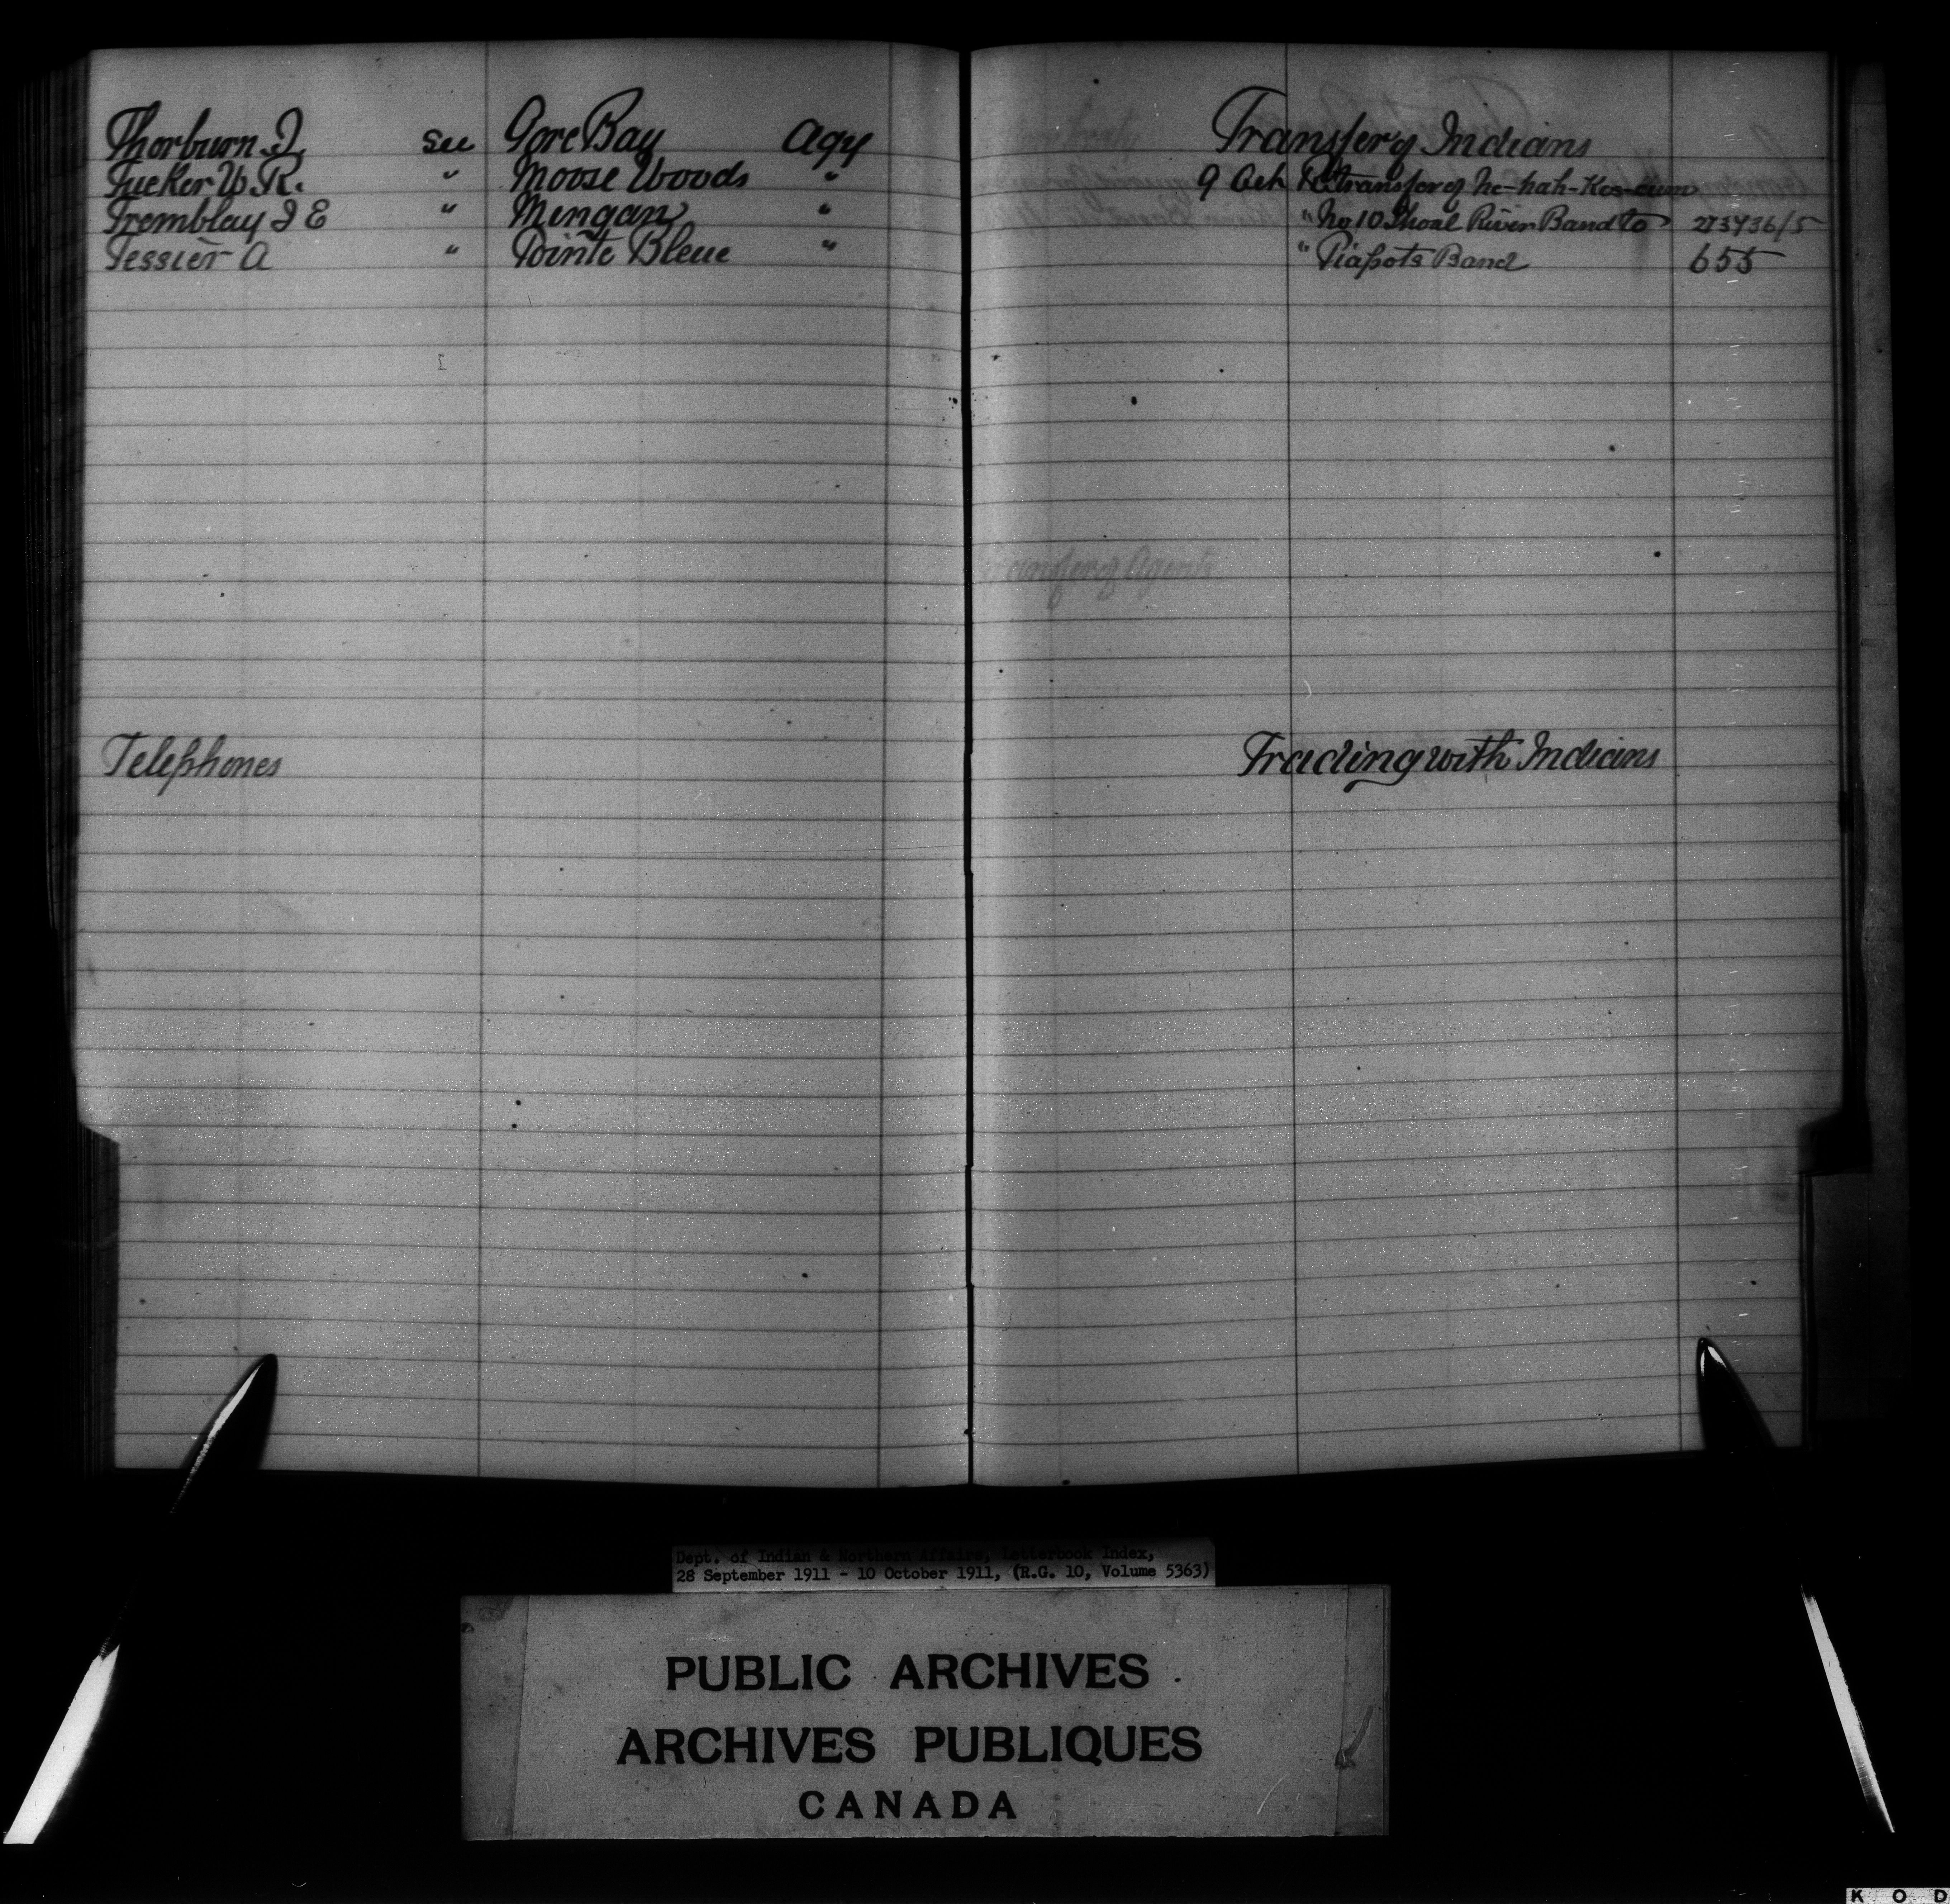 Thorburn J. See Gore Bay Agy
Tucker W. R. " Moose Woods "
Tremblay J E " Mingan "
Tessier A " Pointe Bleue "
Telephones
Transfer of Indians
9 Oct Re transfer of Ne-hah-Kes-cum
" No 10 Shoal River Band to 273736/5
" Piapots Band 655
Transfer of Agents
Trading with Indians
Dept. of Indian & Northern Affairs, Letterbook Index,
28 September 1911 - 10 October 1911, (R.G. 10, Volume 5363)
PUBLIC ARCHIVES
ARCHIVES PUBLIQUES
CANADA
K O D